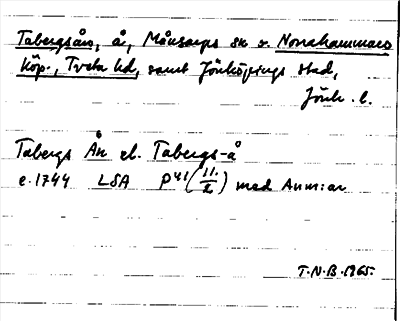 Tabergsån, å, Månsarps sn o. Norrahammars
köp., Tveta hd, samt Jönköpings stad,
Jönk. l.
Tabergs Ån el. Tabergs-å
c. 1744 LSA P41 (11./2) med Anm:ar
T.N.B. 1965.